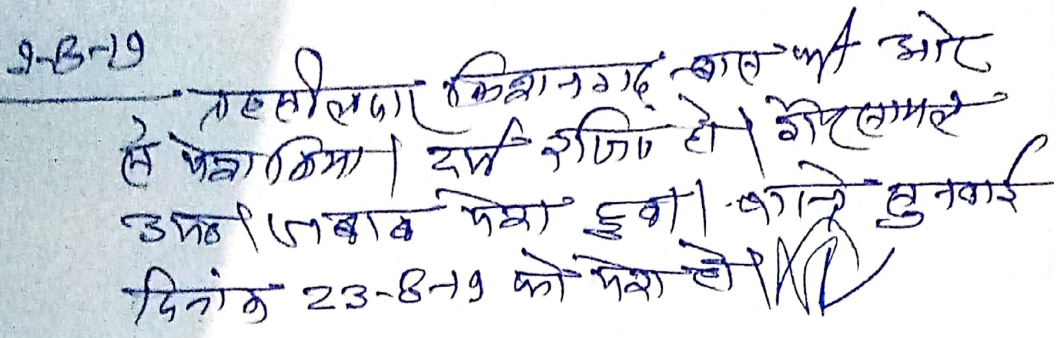 9-8-19
तहसीलदार किशनगढ़ बास की ओर
से पेश किया। दर्ज रजि० हो। गैरसायल
उप०। जबाब पेश हुवा। वास्ते सुनवाई
दिनांक 23-8-19 को पेश हो।